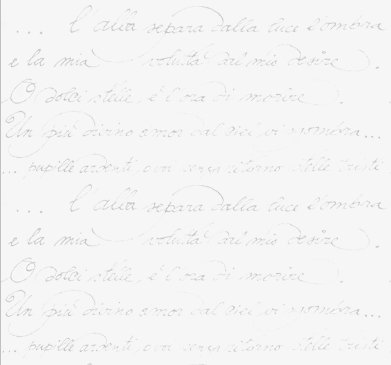 ... l'alba separa dalla luce l'ombra
e la mia voluttà dal mio desire.
O dolci stelle, è l'ora di morire.
Un più divino amor dal ciel vi sgombra...
... pupille ardenti, o voi senza ritorno stelle tristi
... l'alba separa dalla luce l'ombra
e la mia voluttà dal mio desire.
O dolci stelle, è l'ora di morire.
Un più divino amor dal ciel vi sgombra...
... pupille ardenti, o voi senza ritorno stelle tristi